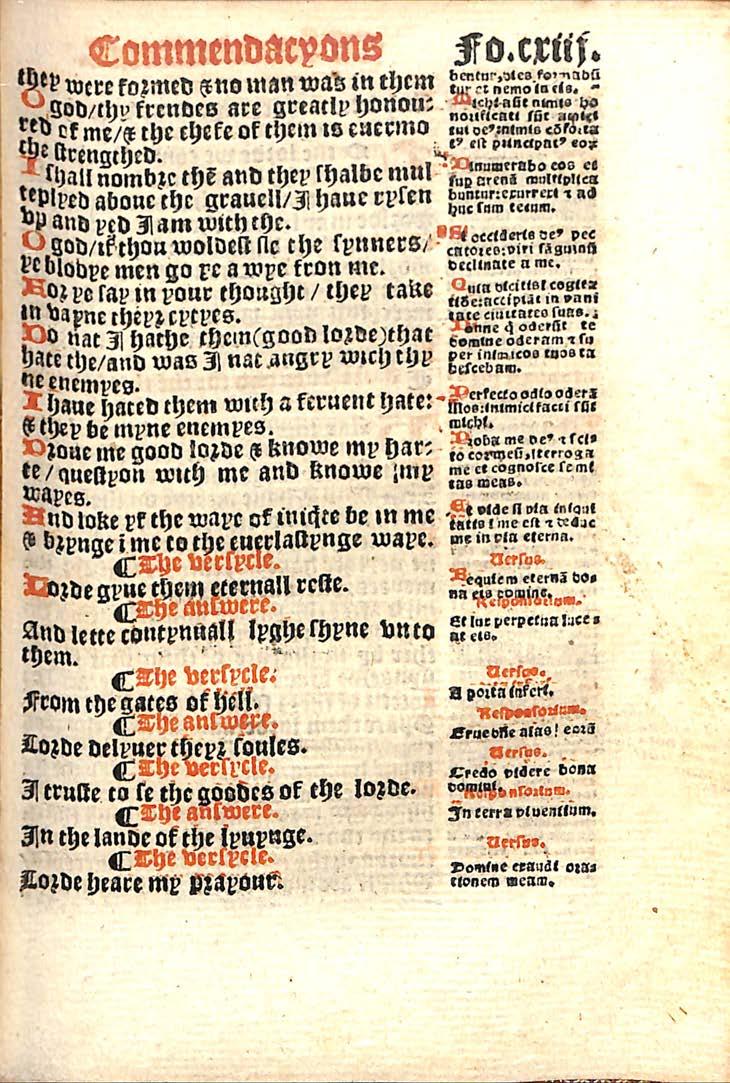 Commendacyons
Fo.cxiij.
they were formed & no man was in them
O god/thy frendes are greatly honou:
red of me/& the chefe of them is euermo
che strengthed.
I shall nombre thē and they shalbe mul
teplyed aboue the grauell/I haue rysen
vp and yed I am with the.
O god/if thou woldest sle the synners/
ye blodye men go ye a wye fron me.
For ye say in your thought / they take
in vayne theyr cytyes.
Do nat I hathe them(good lorde)that
hate the/and was I nat angry wich thy
ne enemyes.
I haue hated them with a feruent hate:
& they be myne enemyes.
Proue me good lorde & knowe my har:
te / questyon with me and knowe my
wayes.
And loke yf the waye of iniqte be in me
& brynge i me to the euerlastynge waye.
¶ The versycle.
Lorde gyue them eternall reste.
¶ The answere.
And lette contynuall lyghe shyne vnto
them.
¶ The versycle:
From the gates of hell.
¶ The answere.
Lorde delyuer theyr soules.
¶ The versycle.
I truste to se the goodes of the lorde.
¶ The answere.
In the lande of the lyuynge.
¶ The versycle.
Lorde heare my prayour:
bentur, dies formabū
tur et nemo in eis.
Michi aūt nimis ho
norificati sūt amici
tui de⁹, nimis cōforta
t⁹ est principat⁹ eoꝝ
Dinumerabo eos et
sup arenā multiplica
buntur: exurrexi ⁊ ad
huc sum tecum.
Si occideris de⁹ pec
catores: viri sāguinū
declinate a me.
Quia dicitis i cogita
tiōe: accipiāt in vani
tate ciuitates suas.
Nonne q̄ oderūt te
domine oderam ⁊ su
per inimicos tuos ta
bescebam.
Perfecto odio oderā
illos: inimici facti sūt
michi.
Proba me de⁹ ⁊ scis
to cor meū, iterroga
me et cognosce semi
tas meas.
Et vide si via iniqui
tatis i me est ⁊ deduc
me in via eterna.
Versus.
Requiem eternā do=
na eis domine.
Responsorium.
Et lux perpetua luce=
at eis.
Versus.
A porta inferi.
Responsorium.
Erue dn̄e aīas! eorū
Versus.
Credo videre bona
domini.
Responsorium.
In terra viuentium.
Versus.
Domine exaudi ora=
tionem meam.